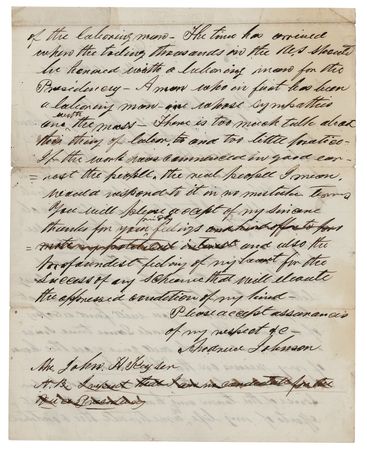 of the laboring man - The time has arrived
when the toiling thousands in the U.S. should
be honored with a laboring man for the
Presidency - A man who in fact has been
a laboring man whose sympathies
are with the mass - There is too much talk about
this thing of labor, and too little practice -
If the work have commenced in good ear-
nest the people, the real people I mean,
would respond to it in no mistaken terms
You will please accept of my sincere
thanks for your feelings
and also the
profoundest feeling of my heart for the
success of any scheme that will elevate
the oppressed condition of my kind -
Please accept assurances
of my respect &c -
Andrew Johnson
Mr. John. H. Keyser
N.B. I repeat that I am no candidate for the